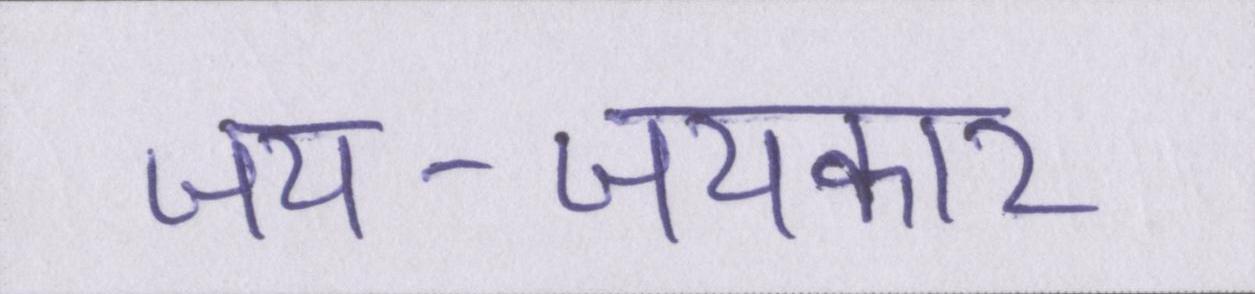 जय-जयकार